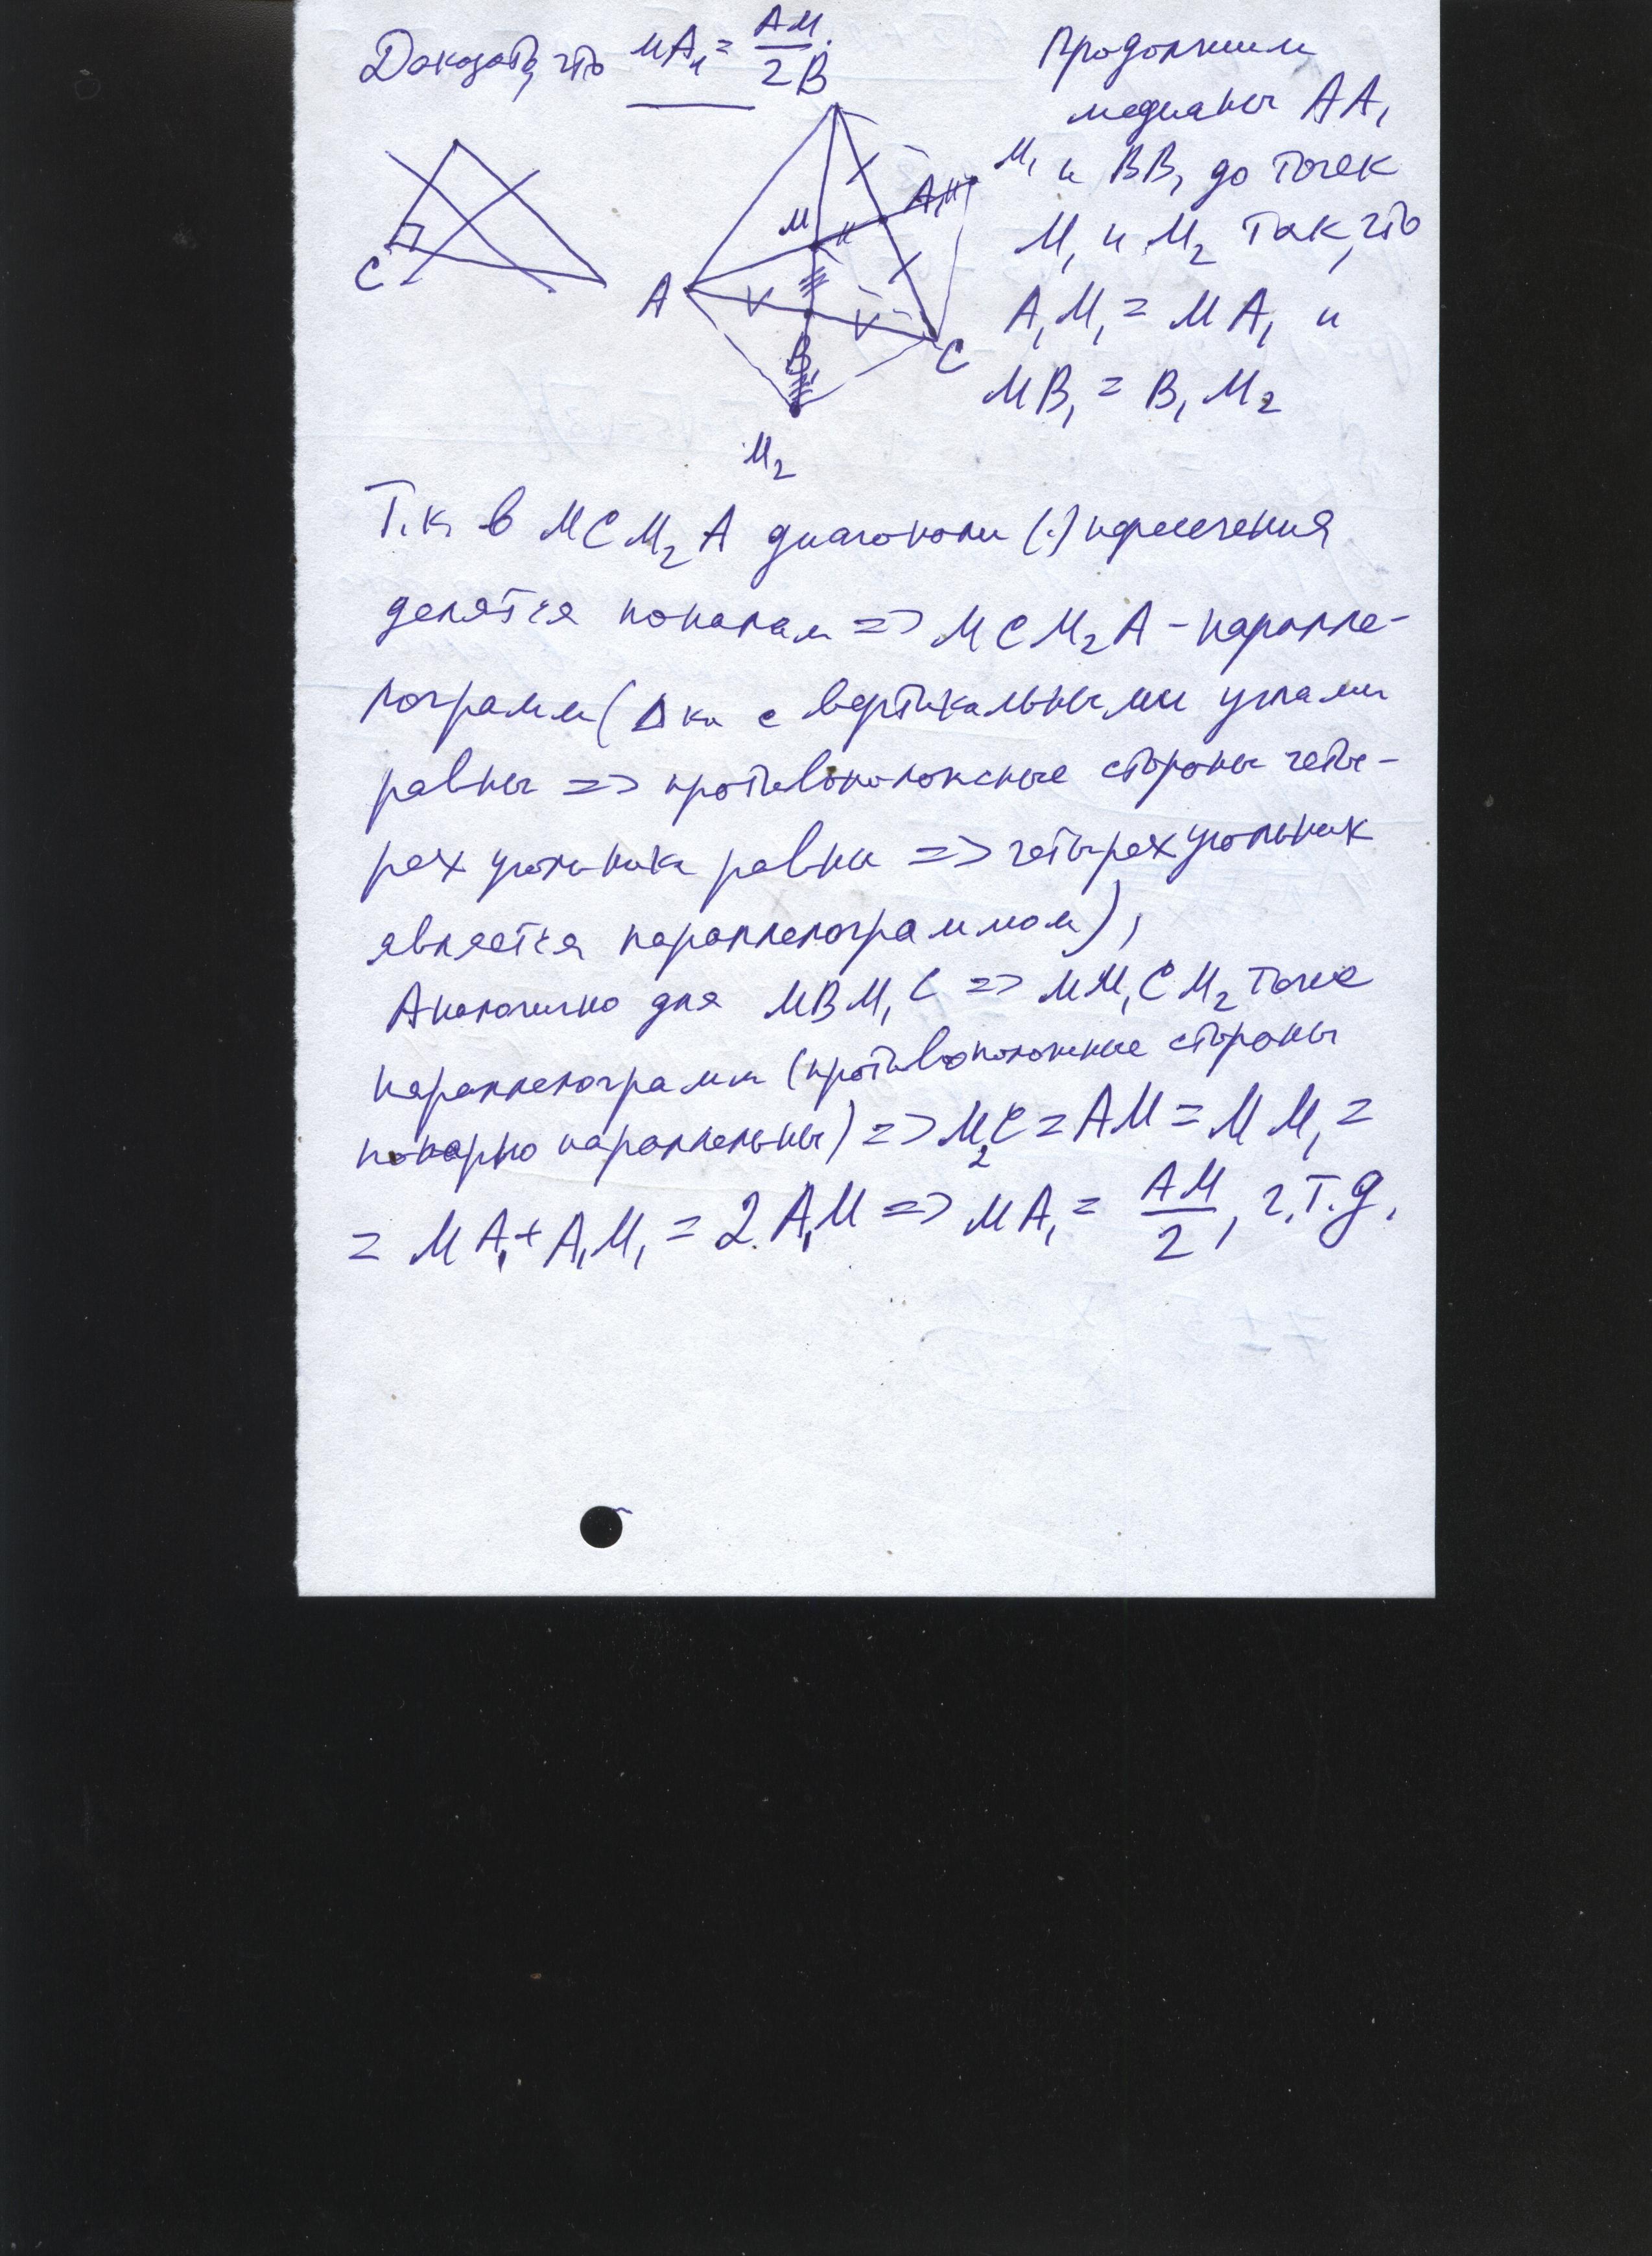 Доказать, что MA₁ = AM/2.
Продолжим
медианы AA₁
и BB₁ до точек
M₁ и M₂ так, что
A₁M₁ = MA₁ и
MB₁ = B₁M₂
B
M₁
A₁
M
C
A
B₁
C
M₂
Т.к. в MCM₂A диагонали (·) пересечения
делятся пополам => MCM₂A - паралле-
лограмм (Δки с вертикальными углами
равны => противоположные стороны четы-
рехугольника равны => четырехугольник
является параллелограммом),
Аналогично для MBM₁C => MM₁CM₂ тоже
параллелограмм (противоположные стороны
попарно параллельны) => M₂C = AM = MM₁ =
= MA₁ + A₁M₁ = 2A₁M => MA₁ = AM/2, ч.т.д.